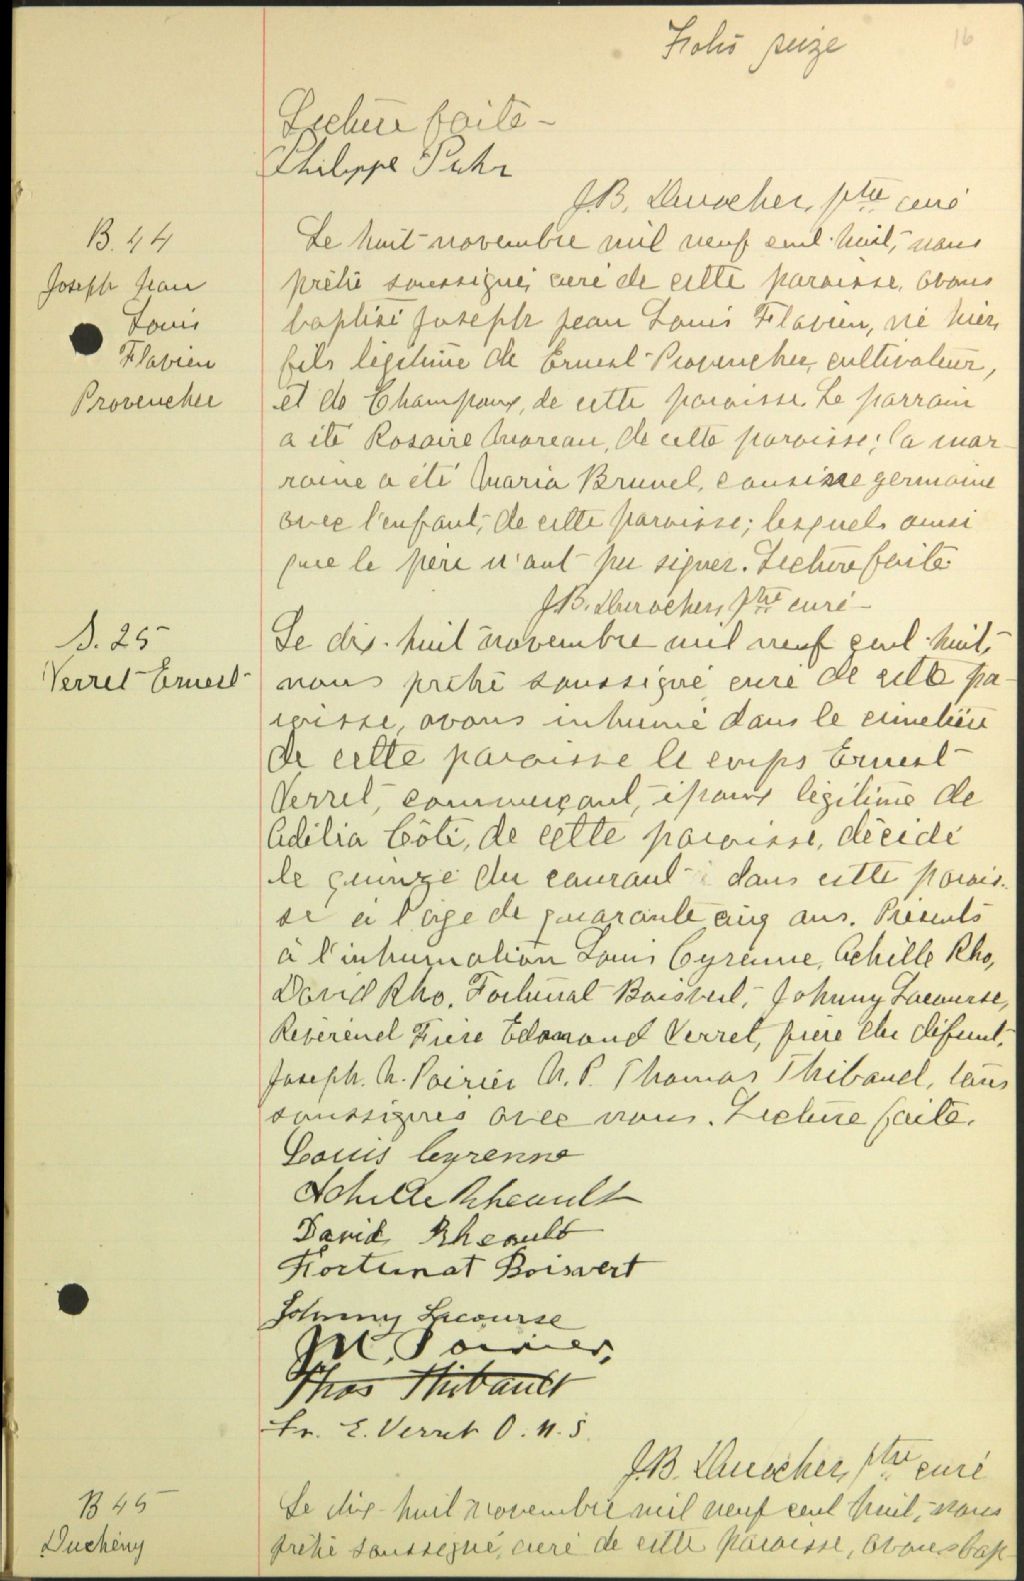 Folio seize
16
Lecture faite -
Philippe
J.B. Durocher, ptre curé
B. 44
Joseph Jean
Louis
Flavien
Provencher
Le huit novembre mil neuf cent huit, nous
prêtre soussigné, curé de cette paroisse, avons
baptisé Joseph Jean Louis Flavien, né hier,
fils légitime de Ernest Provencher, cultivateur,
et de Champoux, de cette paroisse. Le parrain
a été Rosaire Moreau, de cette paroisse; la mar-
raine a été Maria Brunel, cousine germaine
avec l'enfant, de cette paroisse; lesquels ainsi
que le père n'ont pu signer. Lecture faite.
J.B. Durocher, ptre curé -
S. 25
Verret Ernest
Le dix-huit novembre mil neuf cent huit,
nous prêtre soussigné, curé de cette pa-
roisse, avons inhumé dans le cimetière
de cette paroisse le corps Ernest
Verret, commerçant, époux légitime de
Adélia Côté, de cette paroisse, décédé
le quinze du courant dans cette parois-
se à l'âge de quarante cinq ans. Présents
à l'inhumation Louis Cyrenne, Achille Rho,
David Rho, Fortunat Boisvert, Johnny Lacourse,
Révérend Frère Edmond Verret, frère du défunt,
Joseph. N. Poirier N.P. Thomas Thibaud, tous
soussignés avec nous. Lecture faite.
Louis Cyrenne
Achille Rheault
David Rheault
Fortunat Boisvert
Johnny Lacourse
Poirier,
Thos Thibault
Fr. E. Verret
J.B. Durocher, ptre curé
B 45
Ducheny
Le dix-huit novembre mil neuf cent huit, nous
prêtre soussigné, curé de cette paroisse, avons bap-